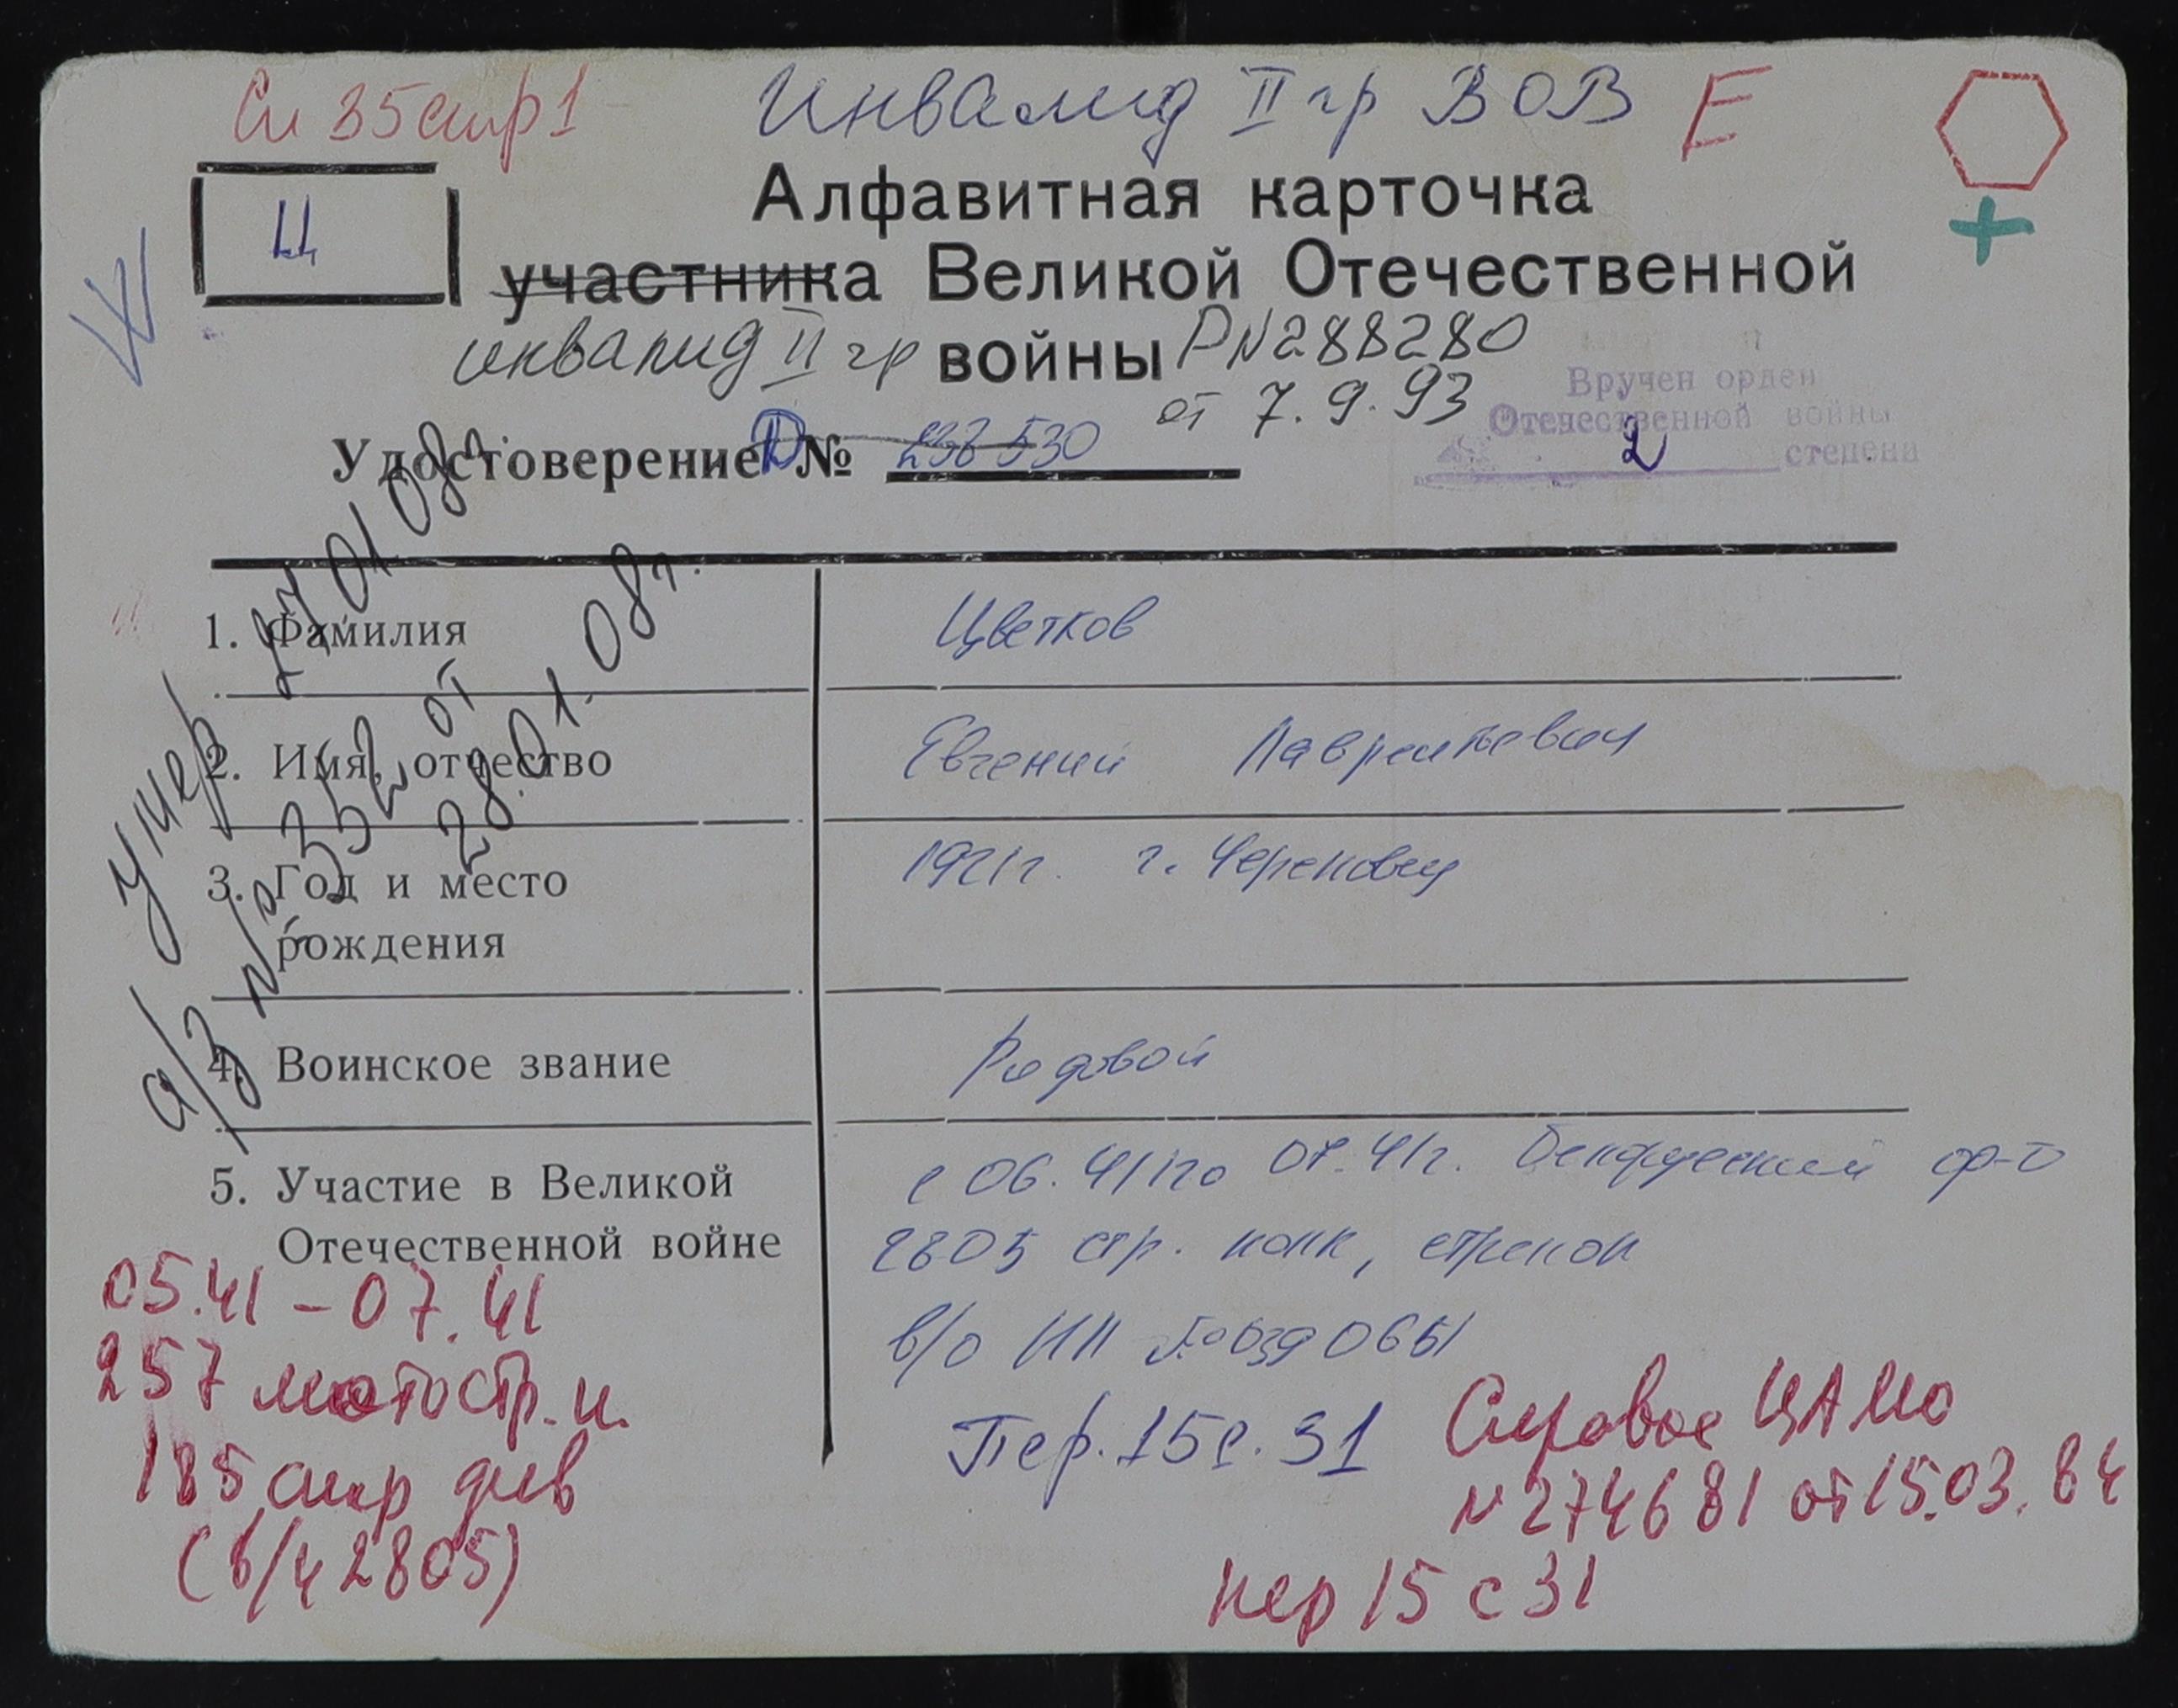 Сп 35 стр 1 Инвалид II гр ВОВ Е
Ц
Алфавитная карточка
участника Великой Отечественной
инвалид II гр войны Р№288280
от 7.9.93
Вручен орден
Отечественной войны
2 степени
Удостоверение Д № 238530
умер 27 01 08г.
а/з № 352 от
28.01.08г.
1. Фамилия Цветков
2. Имя, отчество Евгений Лаврентьевич
3. Год и место рождения 1921г. г. Череповец
4. Воинское звание Рядовой
5. Участие в Великой Отечественной войне
с 06.41 по 07.41г. ф-т
2805 стр. полк, стрелок
в/о НП
Пер. 15 с. 31
05.41 – 07.41
257 мотостр. п.
185 стр див
(в/ч 2805)
Справка ЦАМО
№ 274681 от 15.03.84
пер 15 с 31